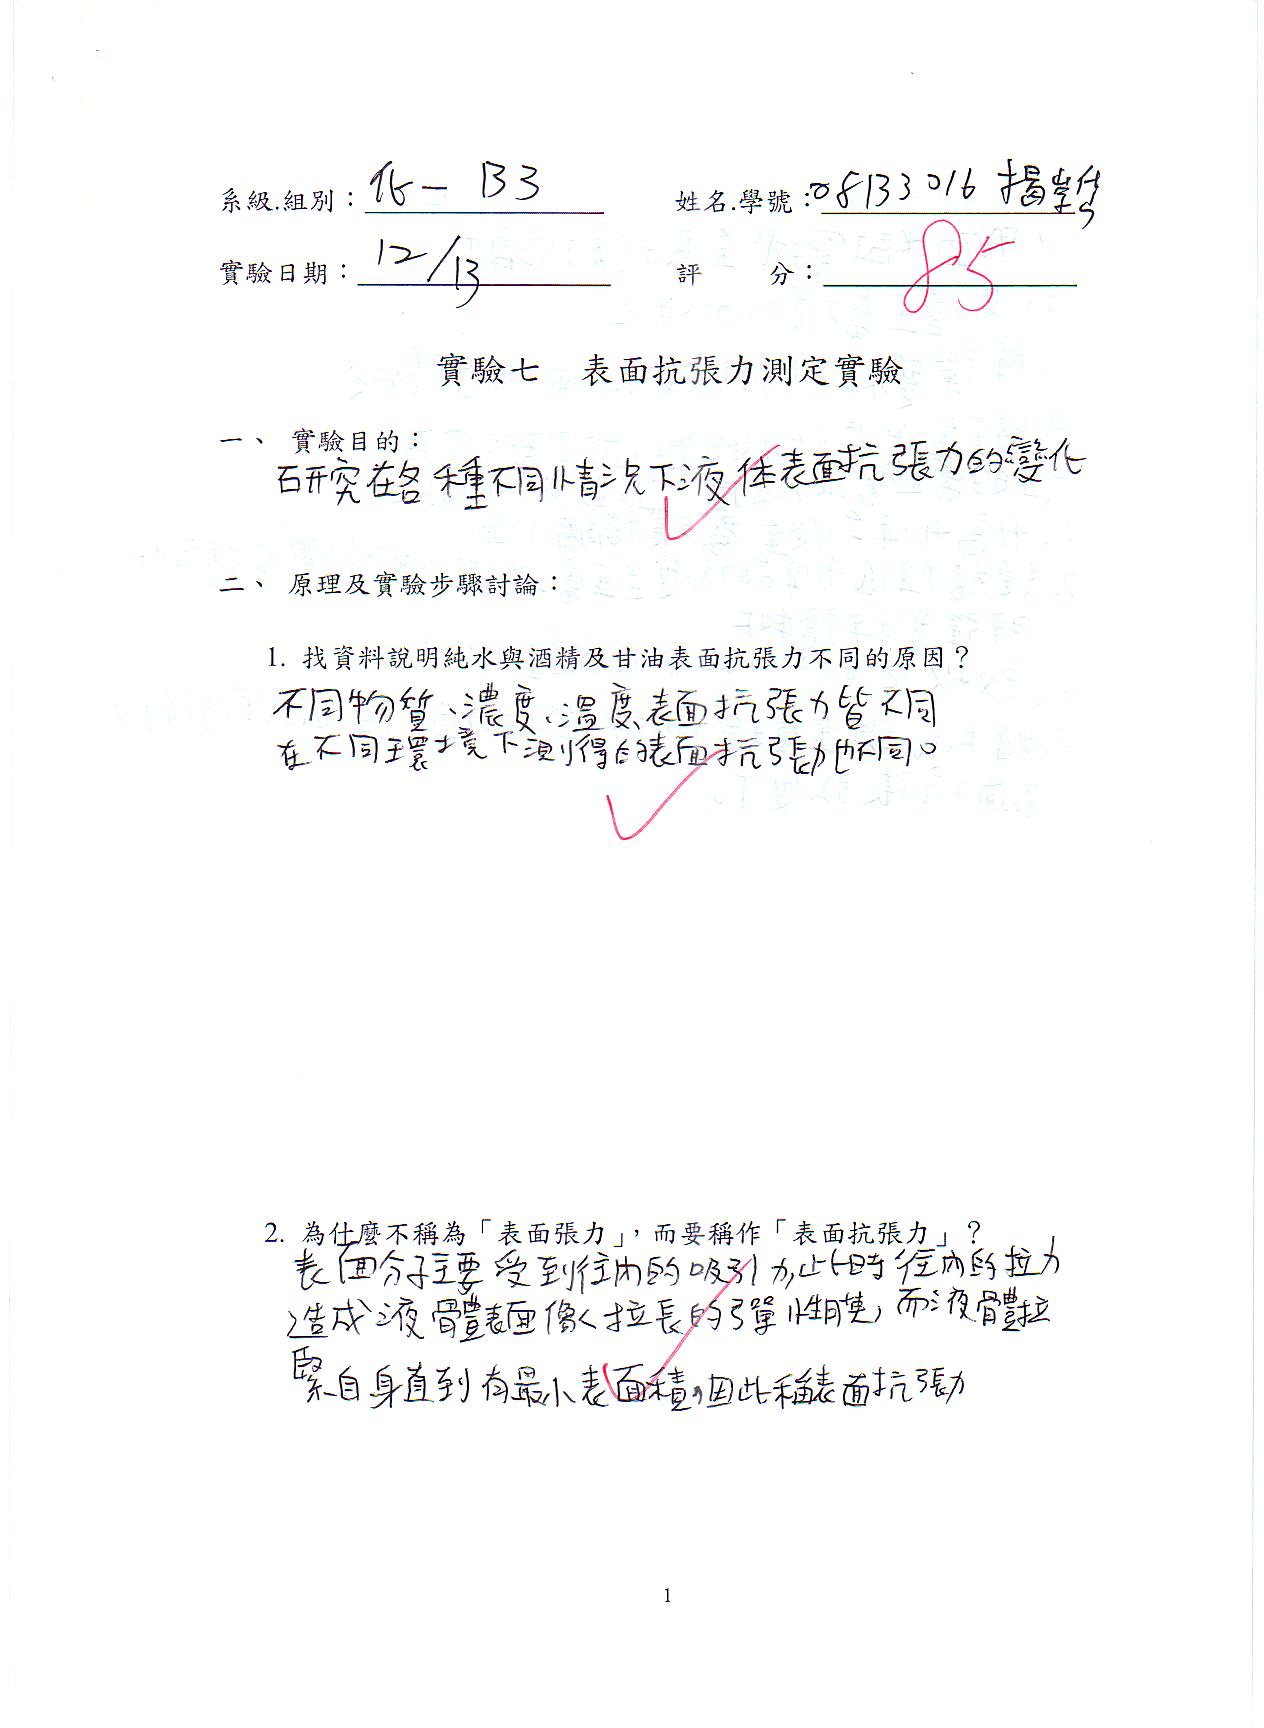 系級.組別：化一 B3 姓名.學號：08133016 楊
實驗日期：12/13 評 分：85
實驗七 表面抗張力測定實驗
一、 實驗目的：
研究在各種不同情況下液体表面抗張力的變化
二、 原理及實驗步驟討論：
1. 找資料說明純水與酒精及甘油表面抗張力不同的原因？
不同物質、濃度、溫度、表面抗張力皆不同
在不同環境下測得的表面抗張力也不同。
2. 為什麼不稱為「表面張力」，而要稱作「表面抗張力」？
表面分子主要受到往內的吸引力，此時往內的拉力
造成液體表面像く拉長的彈性膜，而液體拉
緊自身直到有最小表面積，因此稱表面抗張力
1